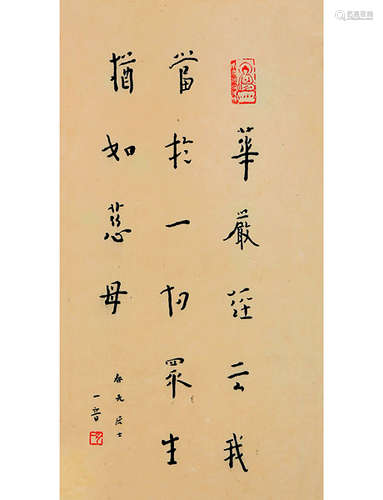 華嚴經云我
當於一切眾生
猶如慈母
春元居士
一音